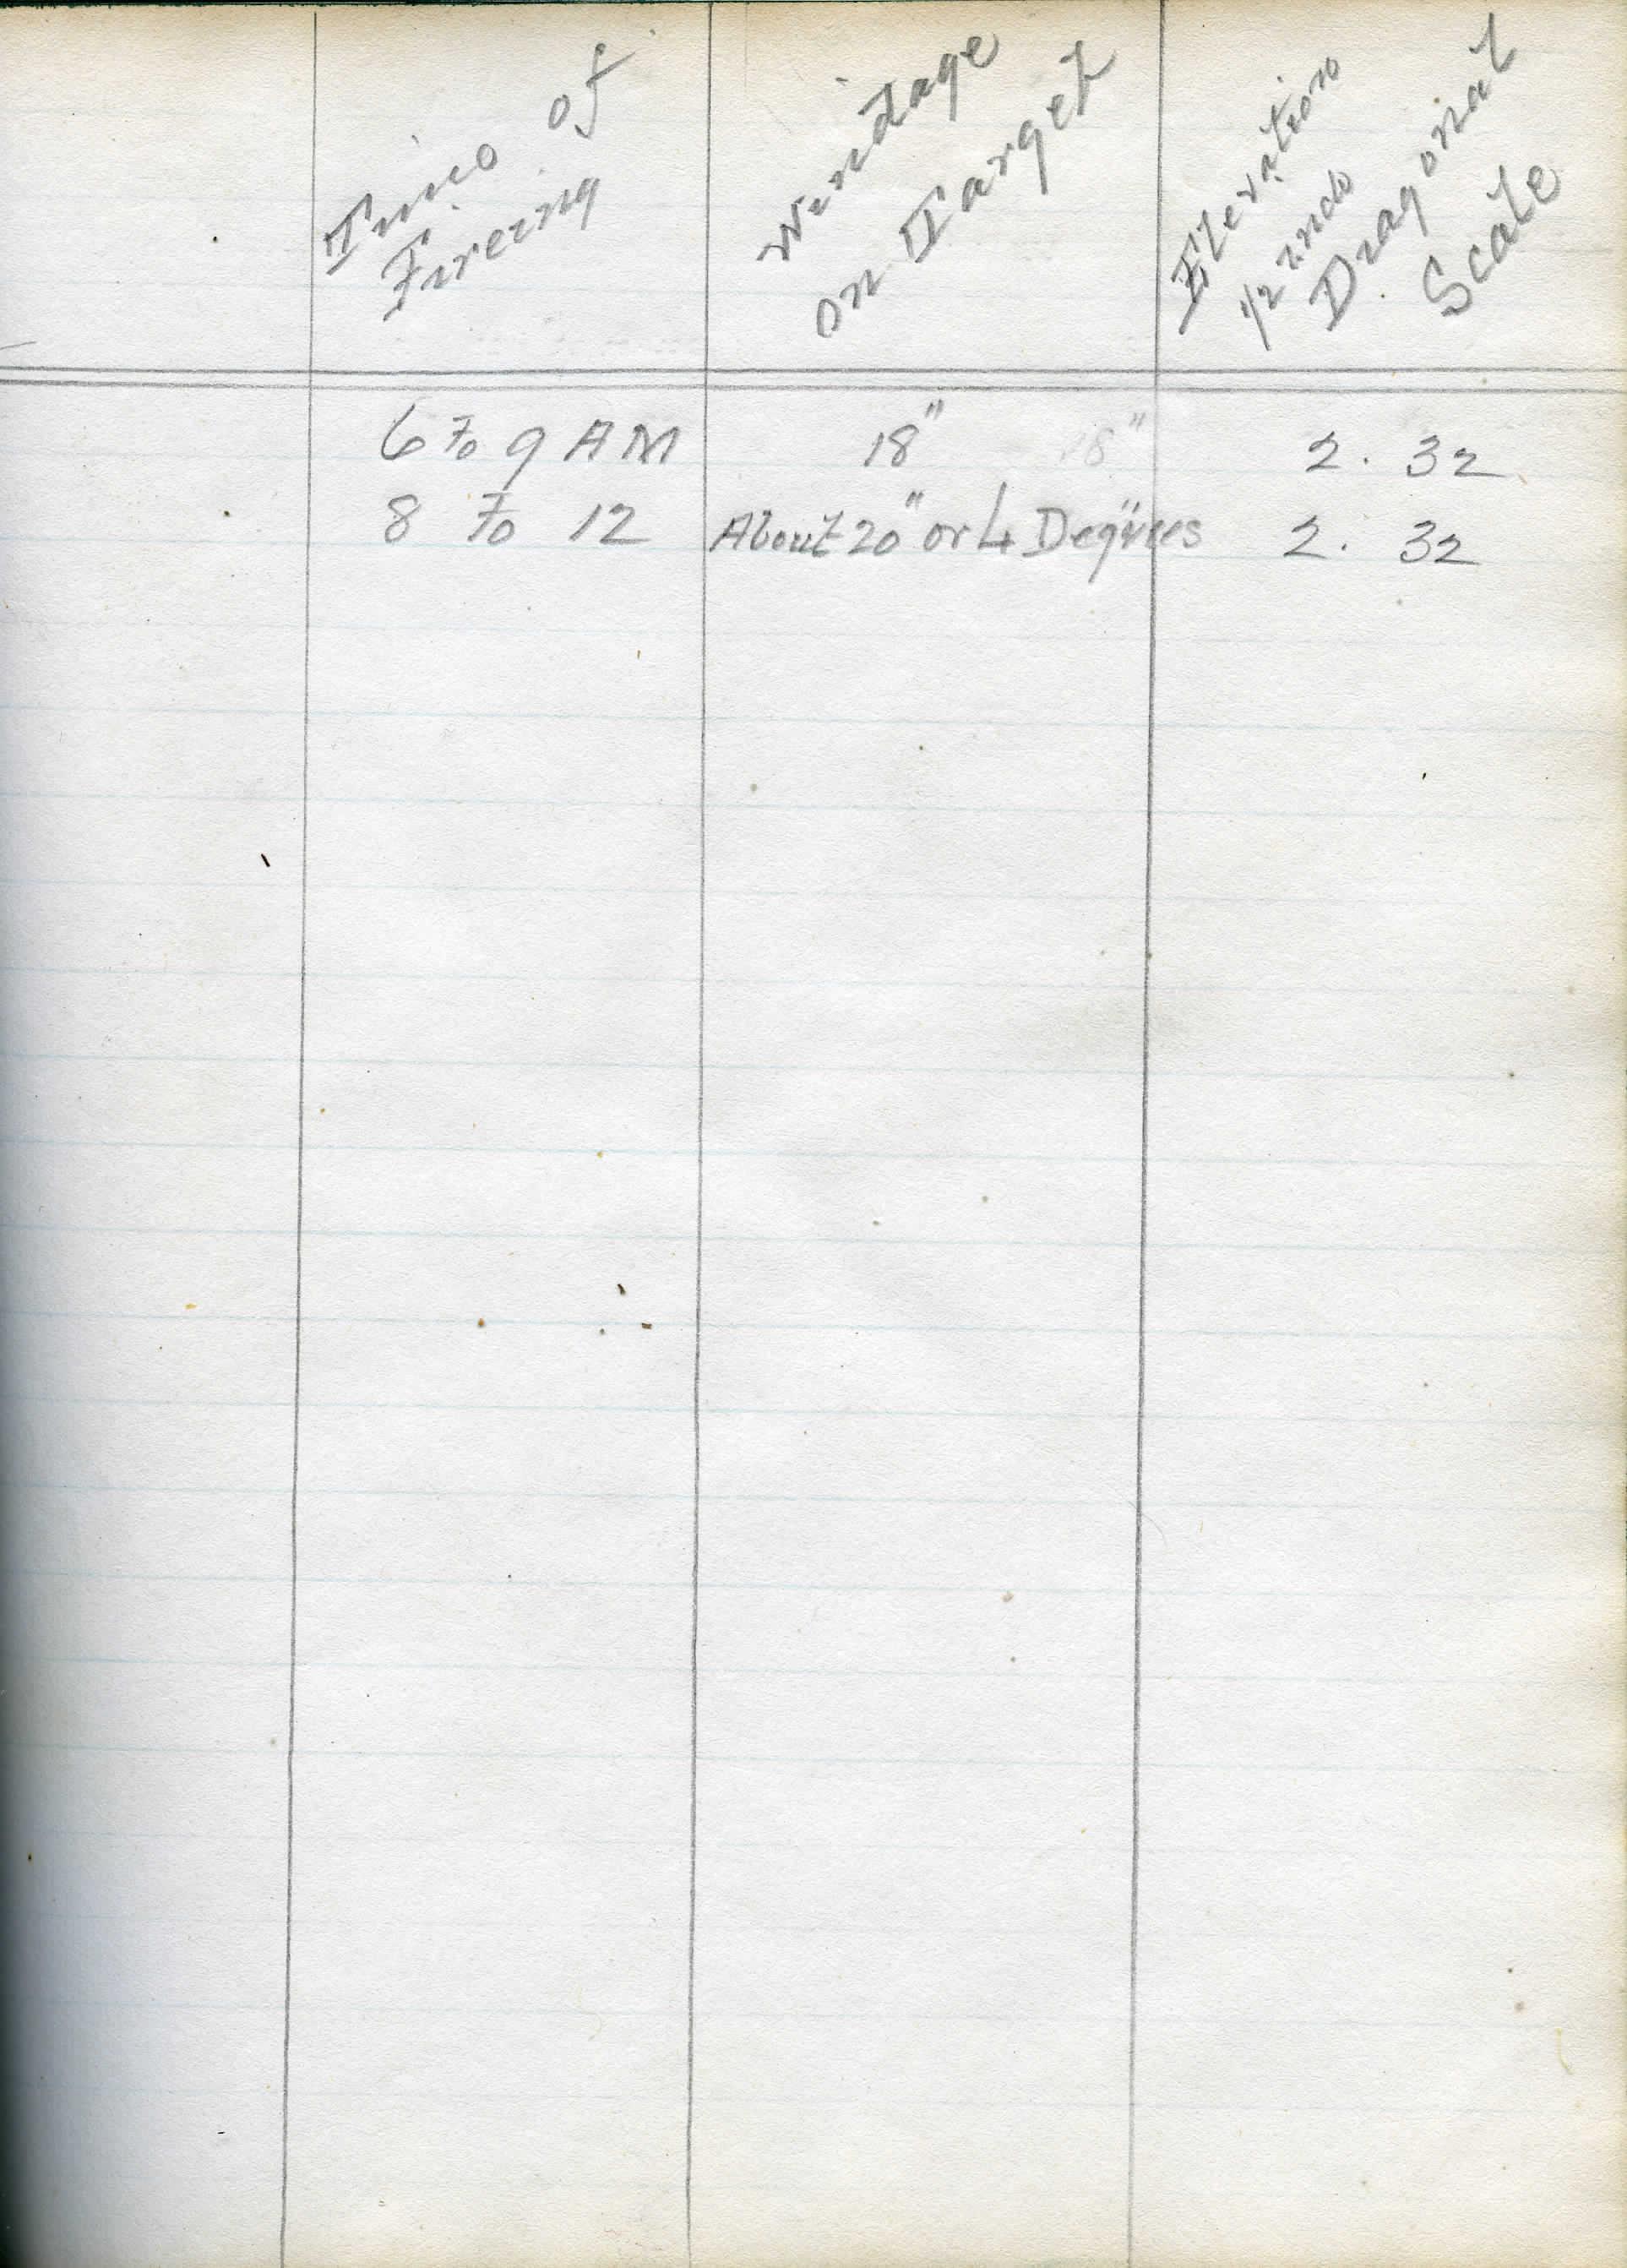 Time of
Firering
Windage
on Target
Elevation
1/2 Inch
Diagonal
Scale
6 To 9 AM 18" 18" 2. 32
8 To 12 About 20" or 4 Degrees 2. 32